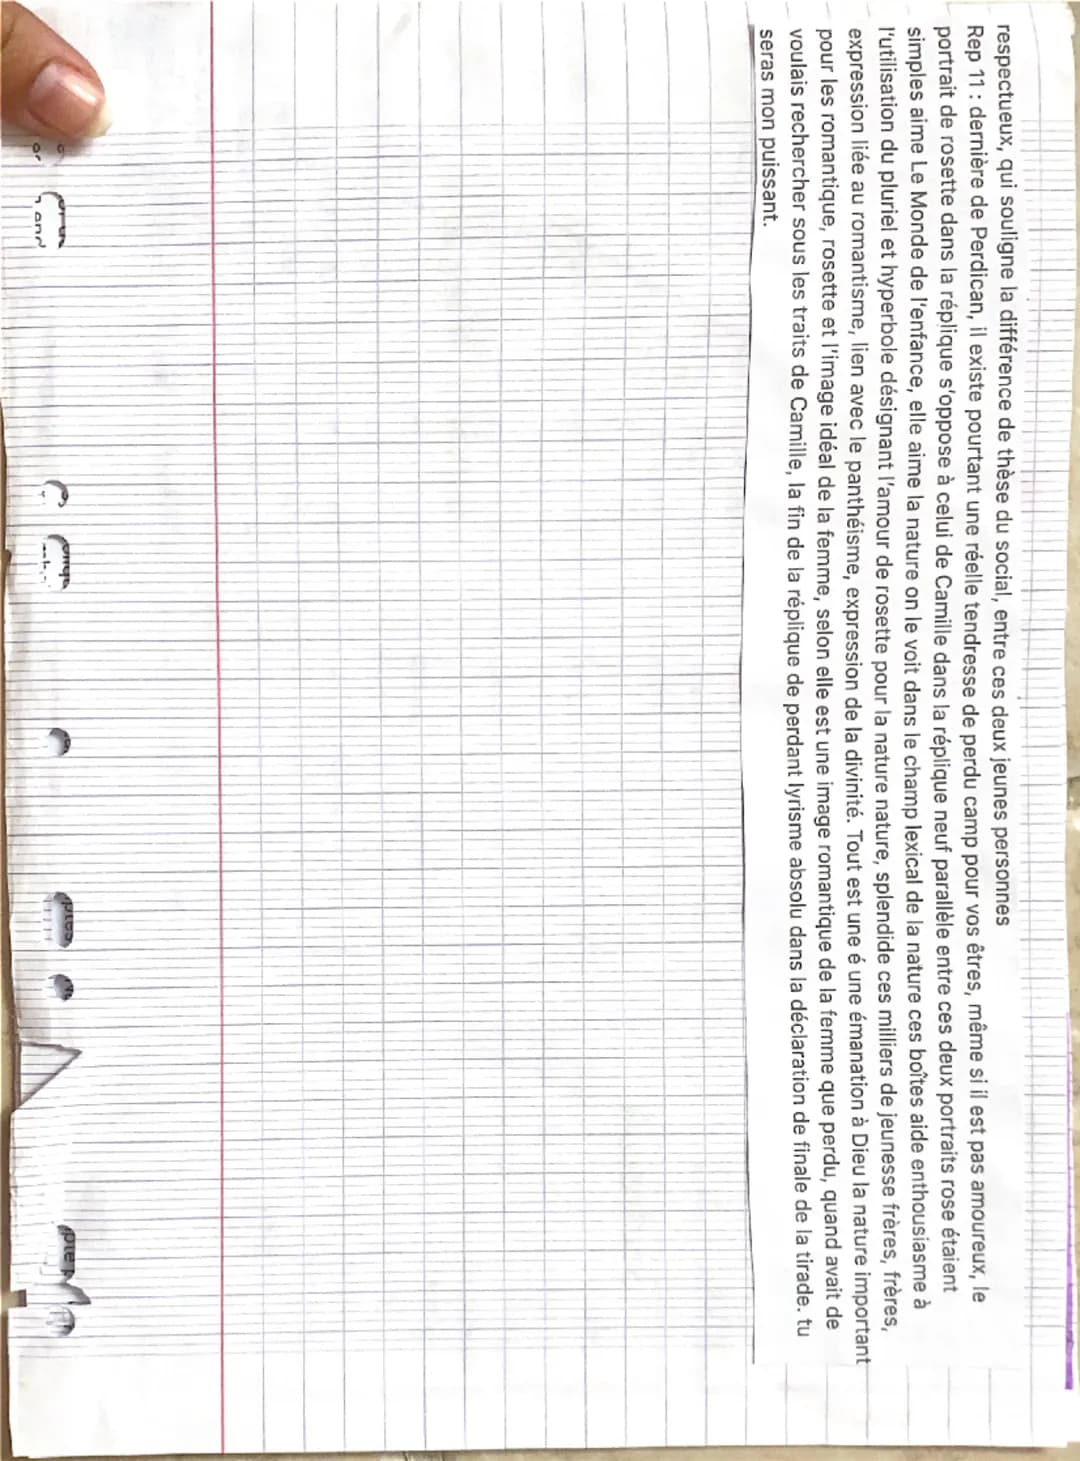 respectueux, qui souligne la différence de thèse du social, entre ces deux jeunes personnes
Rep 11 : dernière de Perdican, il existe pourtant une réelle tendresse de perdu camp pour vos êtres, même si il est pas amoureux, le
portrait de rosette dans la réplique s'oppose à celui de Camille dans la réplique neuf parallèle entre ces deux portraits rose étaient
simples aime Le Monde de l'enfance, elle aime la nature on le voit dans le champ lexical de la nature ces boîtes aide enthousiasme à
l'utilisation du pluriel et hyperbole désignant l'amour de rosette pour la nature nature, splendide ces milliers de jeunesse frères, frères,
expression liée au romantisme, lien avec le panthéisme, expression de la divinité. Tout est une é une émanation à Dieu la nature important
pour les romantique, rosette et l'image idéal de la femme, selon elle est une image romantique de la femme que perdu, quand avait de
voulais rechercher sous les traits de Camille, la fin de la réplique de perdant lyrisme absolu dans la déclaration de finale de la tirade. tu
seras mon puissant.